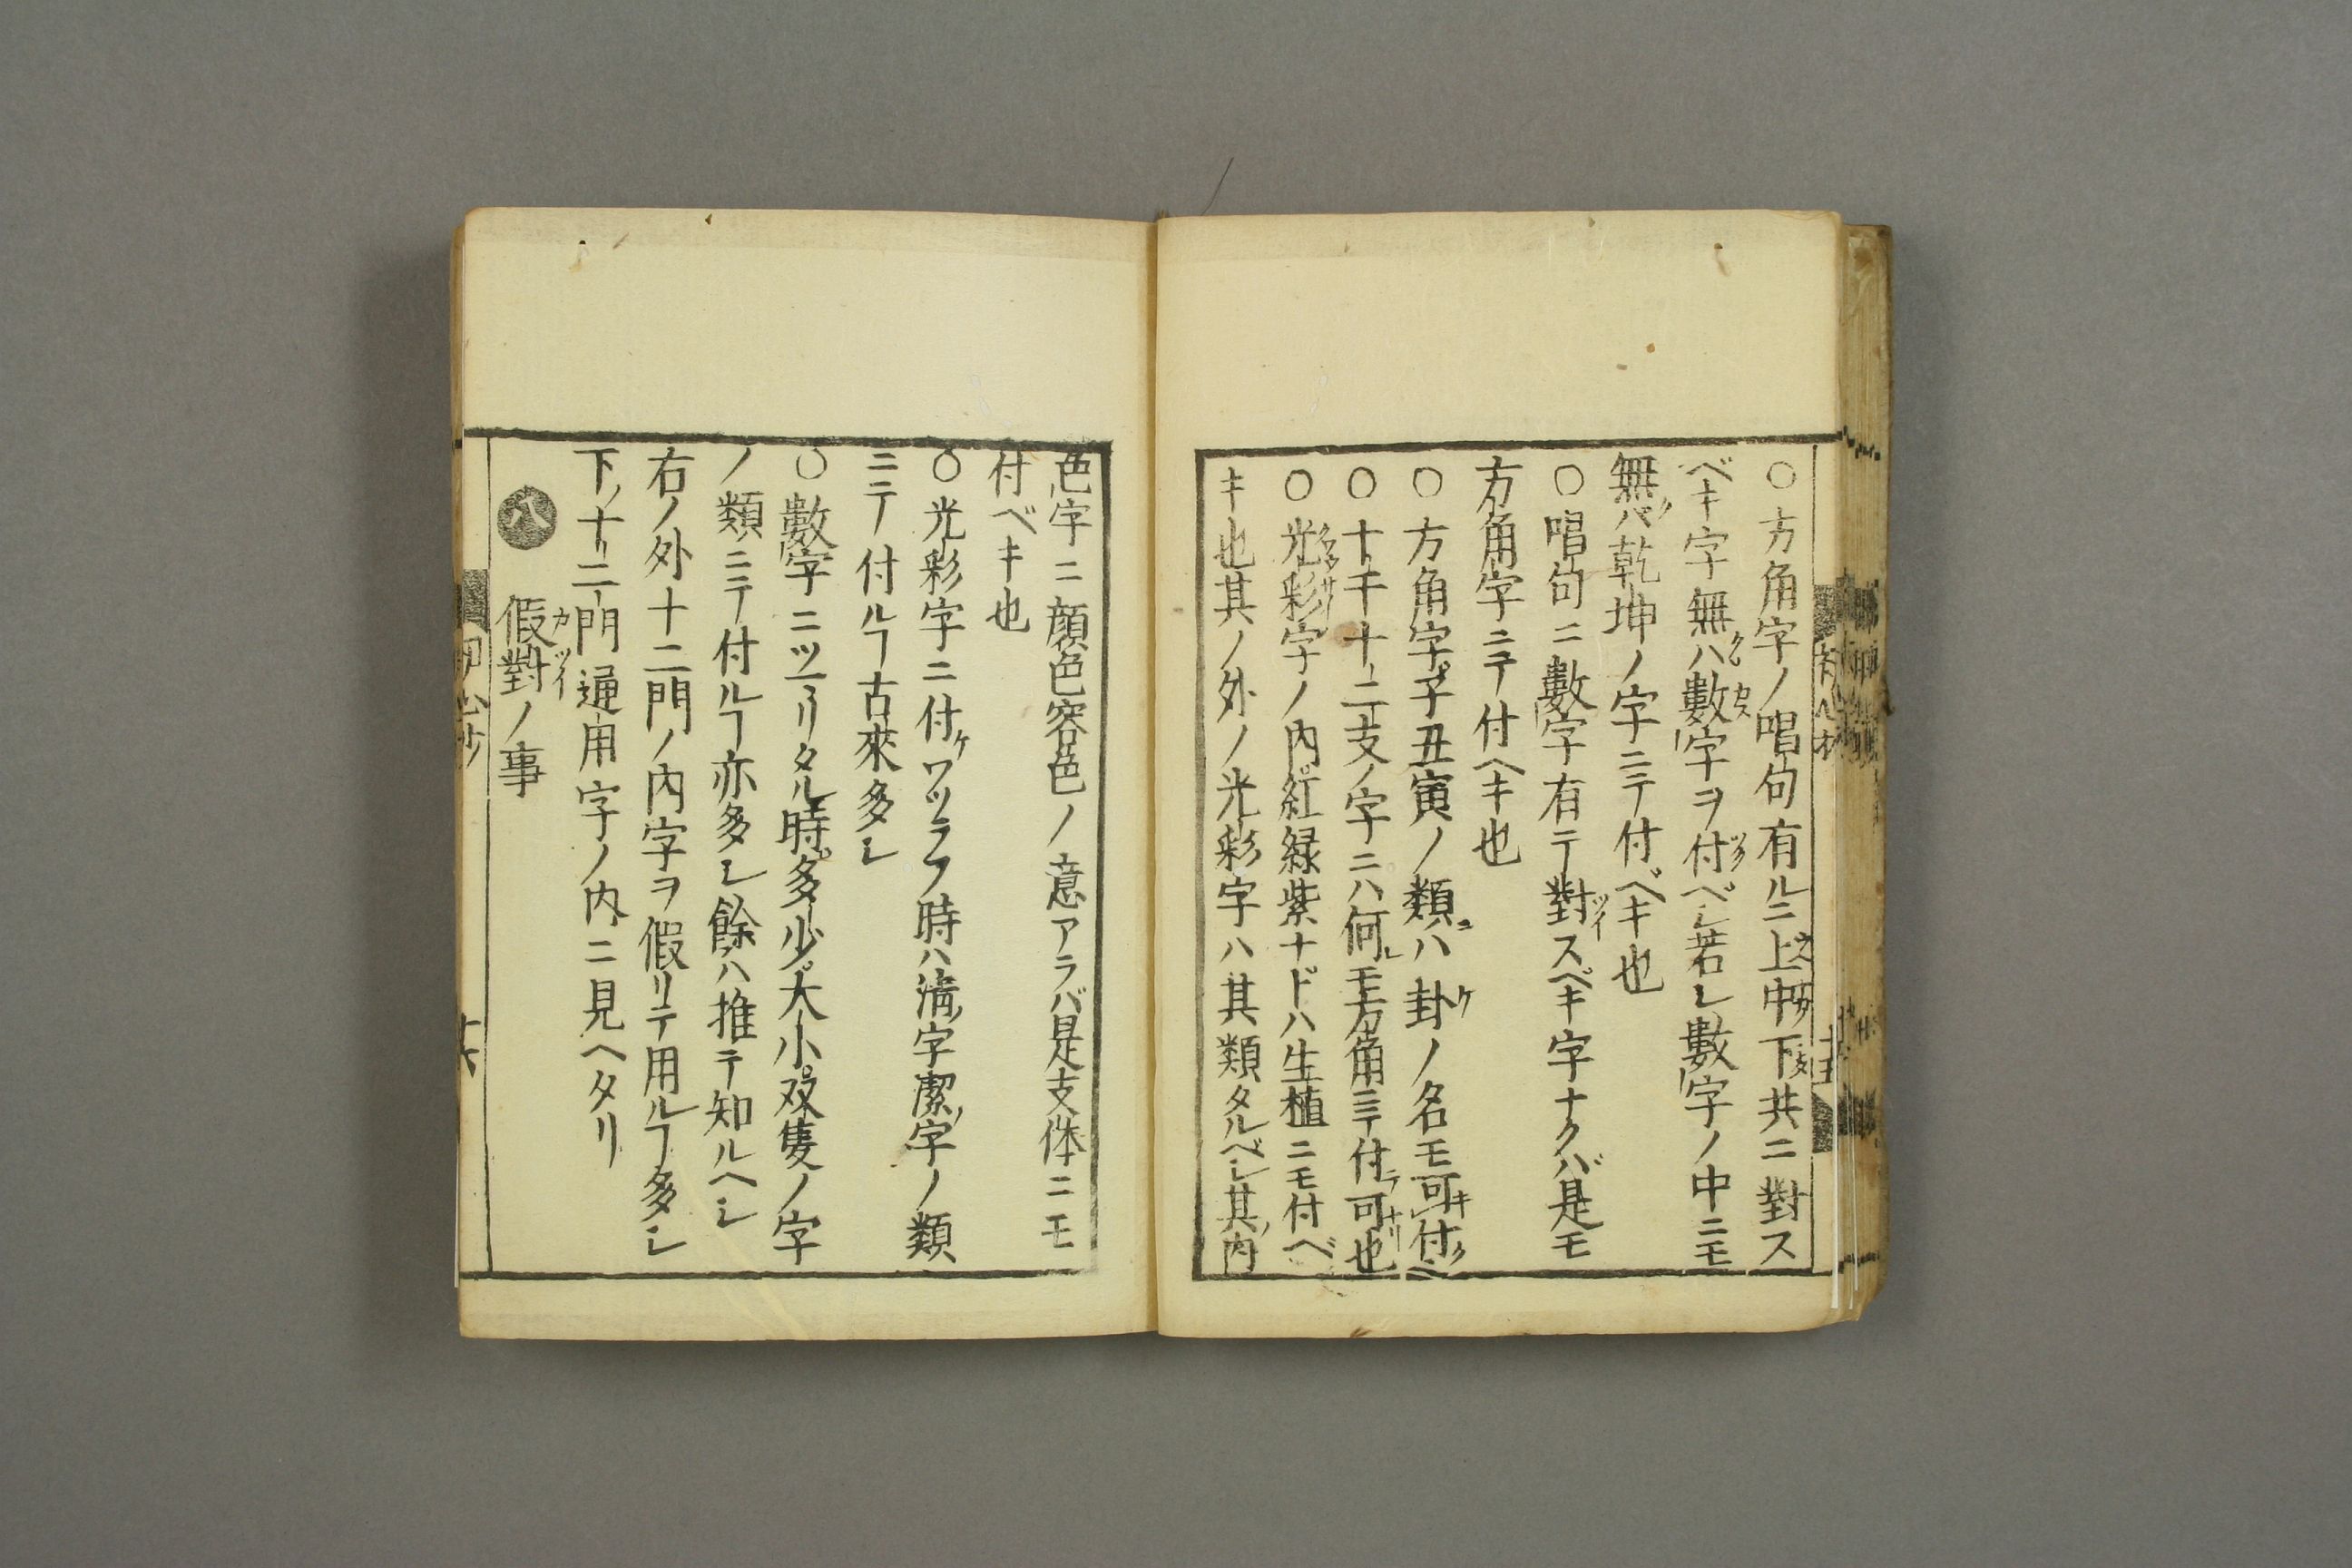 ○方角字ノ唱句有ルニ上中下共ニ對ス
ベキ字無ハ數字ヲ付ベシ若シ數字ノ中ニモ
無バ乾坤ノ字ニテ付ベキ也
○唱句ニ數字有テ對スベキ字ナクバ是モ
方角字ニテ付ヘキ也
○方角字子丑寅ノ類ハ卦ノ名モ可付
○十干十二支ノ字ニハ何モ方角ニテ付可也
○光彩字ノ内紅緑紫ナドハ生植ニモ付ベ
キ也其ノ外ノ光彩字ハ其類タルベシ其内
色字ニ顔色容色ノ意アラバ是支体ニモ
付ベキ也
○光彩字ニ付ケワツラフ時ハ清字潔字ノ類
ニテ付ルヿ古來多シ
○數字ニツマリタル時多少大小双隻ノ字
ノ類ニテ付ルヿ亦多シ餘ハ推テ知ルヘシ
右ノ外十二門ノ内字ヲ假リテ用ルヿ多シ
下ノ十二門通用字ノ内ニ見ヘタリ
八 假對ノ事